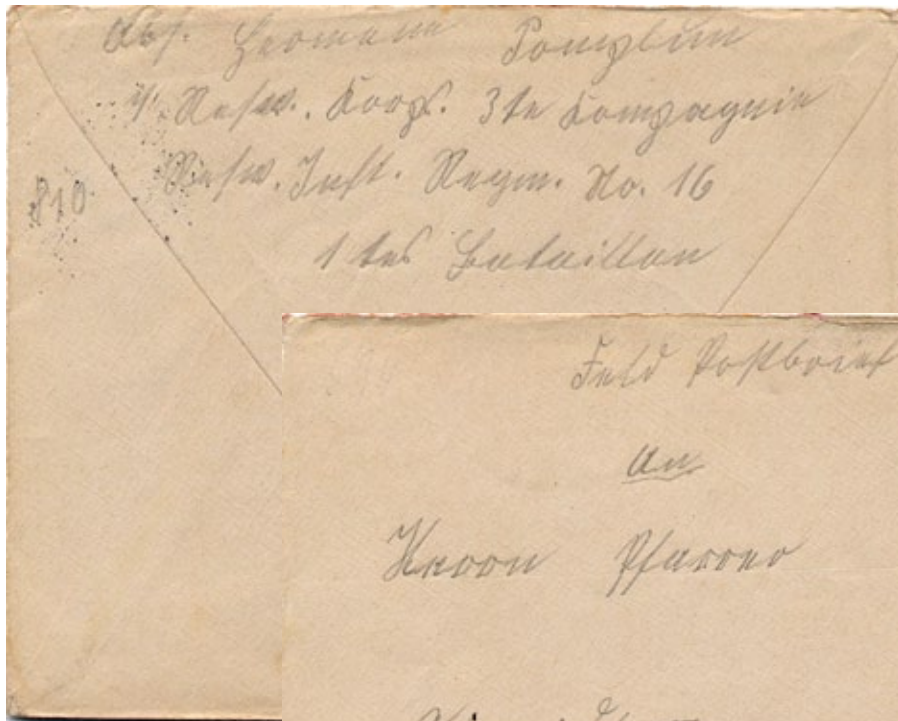 Abs. Hermann
Resw. Korps. 3te Kompagnie
Resw. Inft. Regm. No. 16
1tes Bataillon
810
Feld Postbrief
An
Herrn Pfarrer